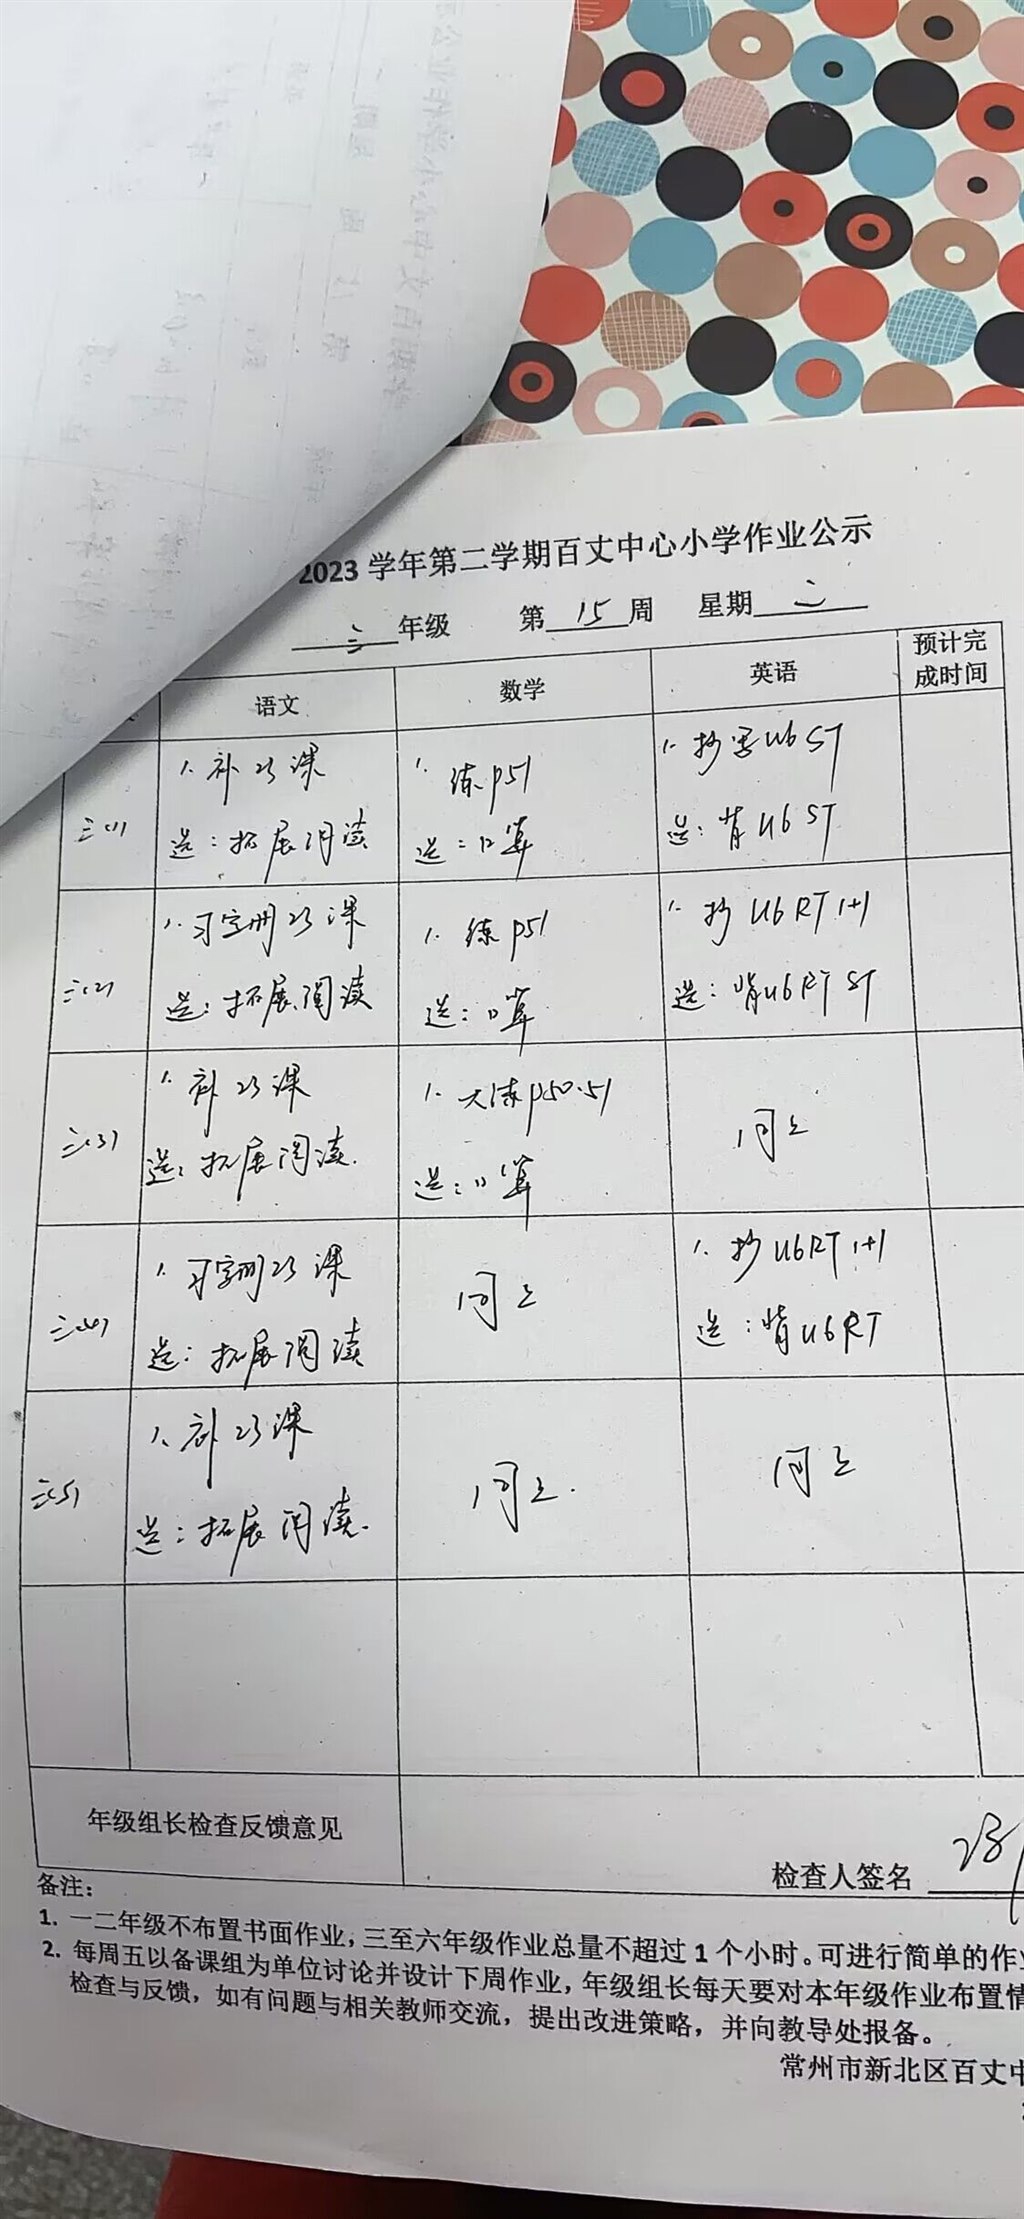 2023 学年第二学期百丈中心小学作业公示
三 年级 第 15 周 星期 二
语文 数学 英语 预计完成时间
三(1)
1. 补23课
选：拓展阅读
1. 练p51
选：口算
1. 抄写U6 ST
选：背U6 ST
三(2)
1. 习字册23课
选：拓展阅读
1. 练p51
选：口算
1. 抄U6 RT 1+1
选：背U6 RT ST
三(3)
1. 补23课
选：拓展阅读.
1. 大练p50.51
选：口算
同上
三(4)
1. 习字册23课
选：拓展阅读
同上
1. 抄U6RT 1+1
选：背U6RT
三(5)
1. 补23课
选：拓展阅读.
同上.
同上
年级组长检查反馈意见
检查人签名
备注：
1. 一二年级不布置书面作业，三至六年级作业总量不超过 1 个小时。可进行简单的作
2. 每周五以备课组为单位讨论并设计下周作业，年级组长每天要对本年级作业布置情
检查与反馈，如有问题与相关教师交流，提出改进策略，并向教导处报备。
常州市新北区百丈中